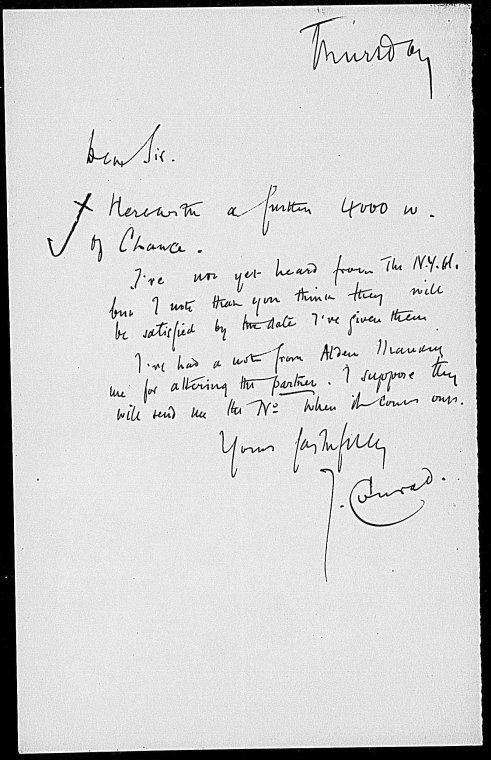 Thursday
Dear Sir.
Herewith a further 4000 w.
of Chance.
I've not yet heard from The N.Y.H.
but I note that you think they will
be satisfied by the date I've given them
I've had a note from Alden thanking
me for altering the partner. I suppose they
will send me the No when it comes out.
Yours faithfully
J. Conrad.